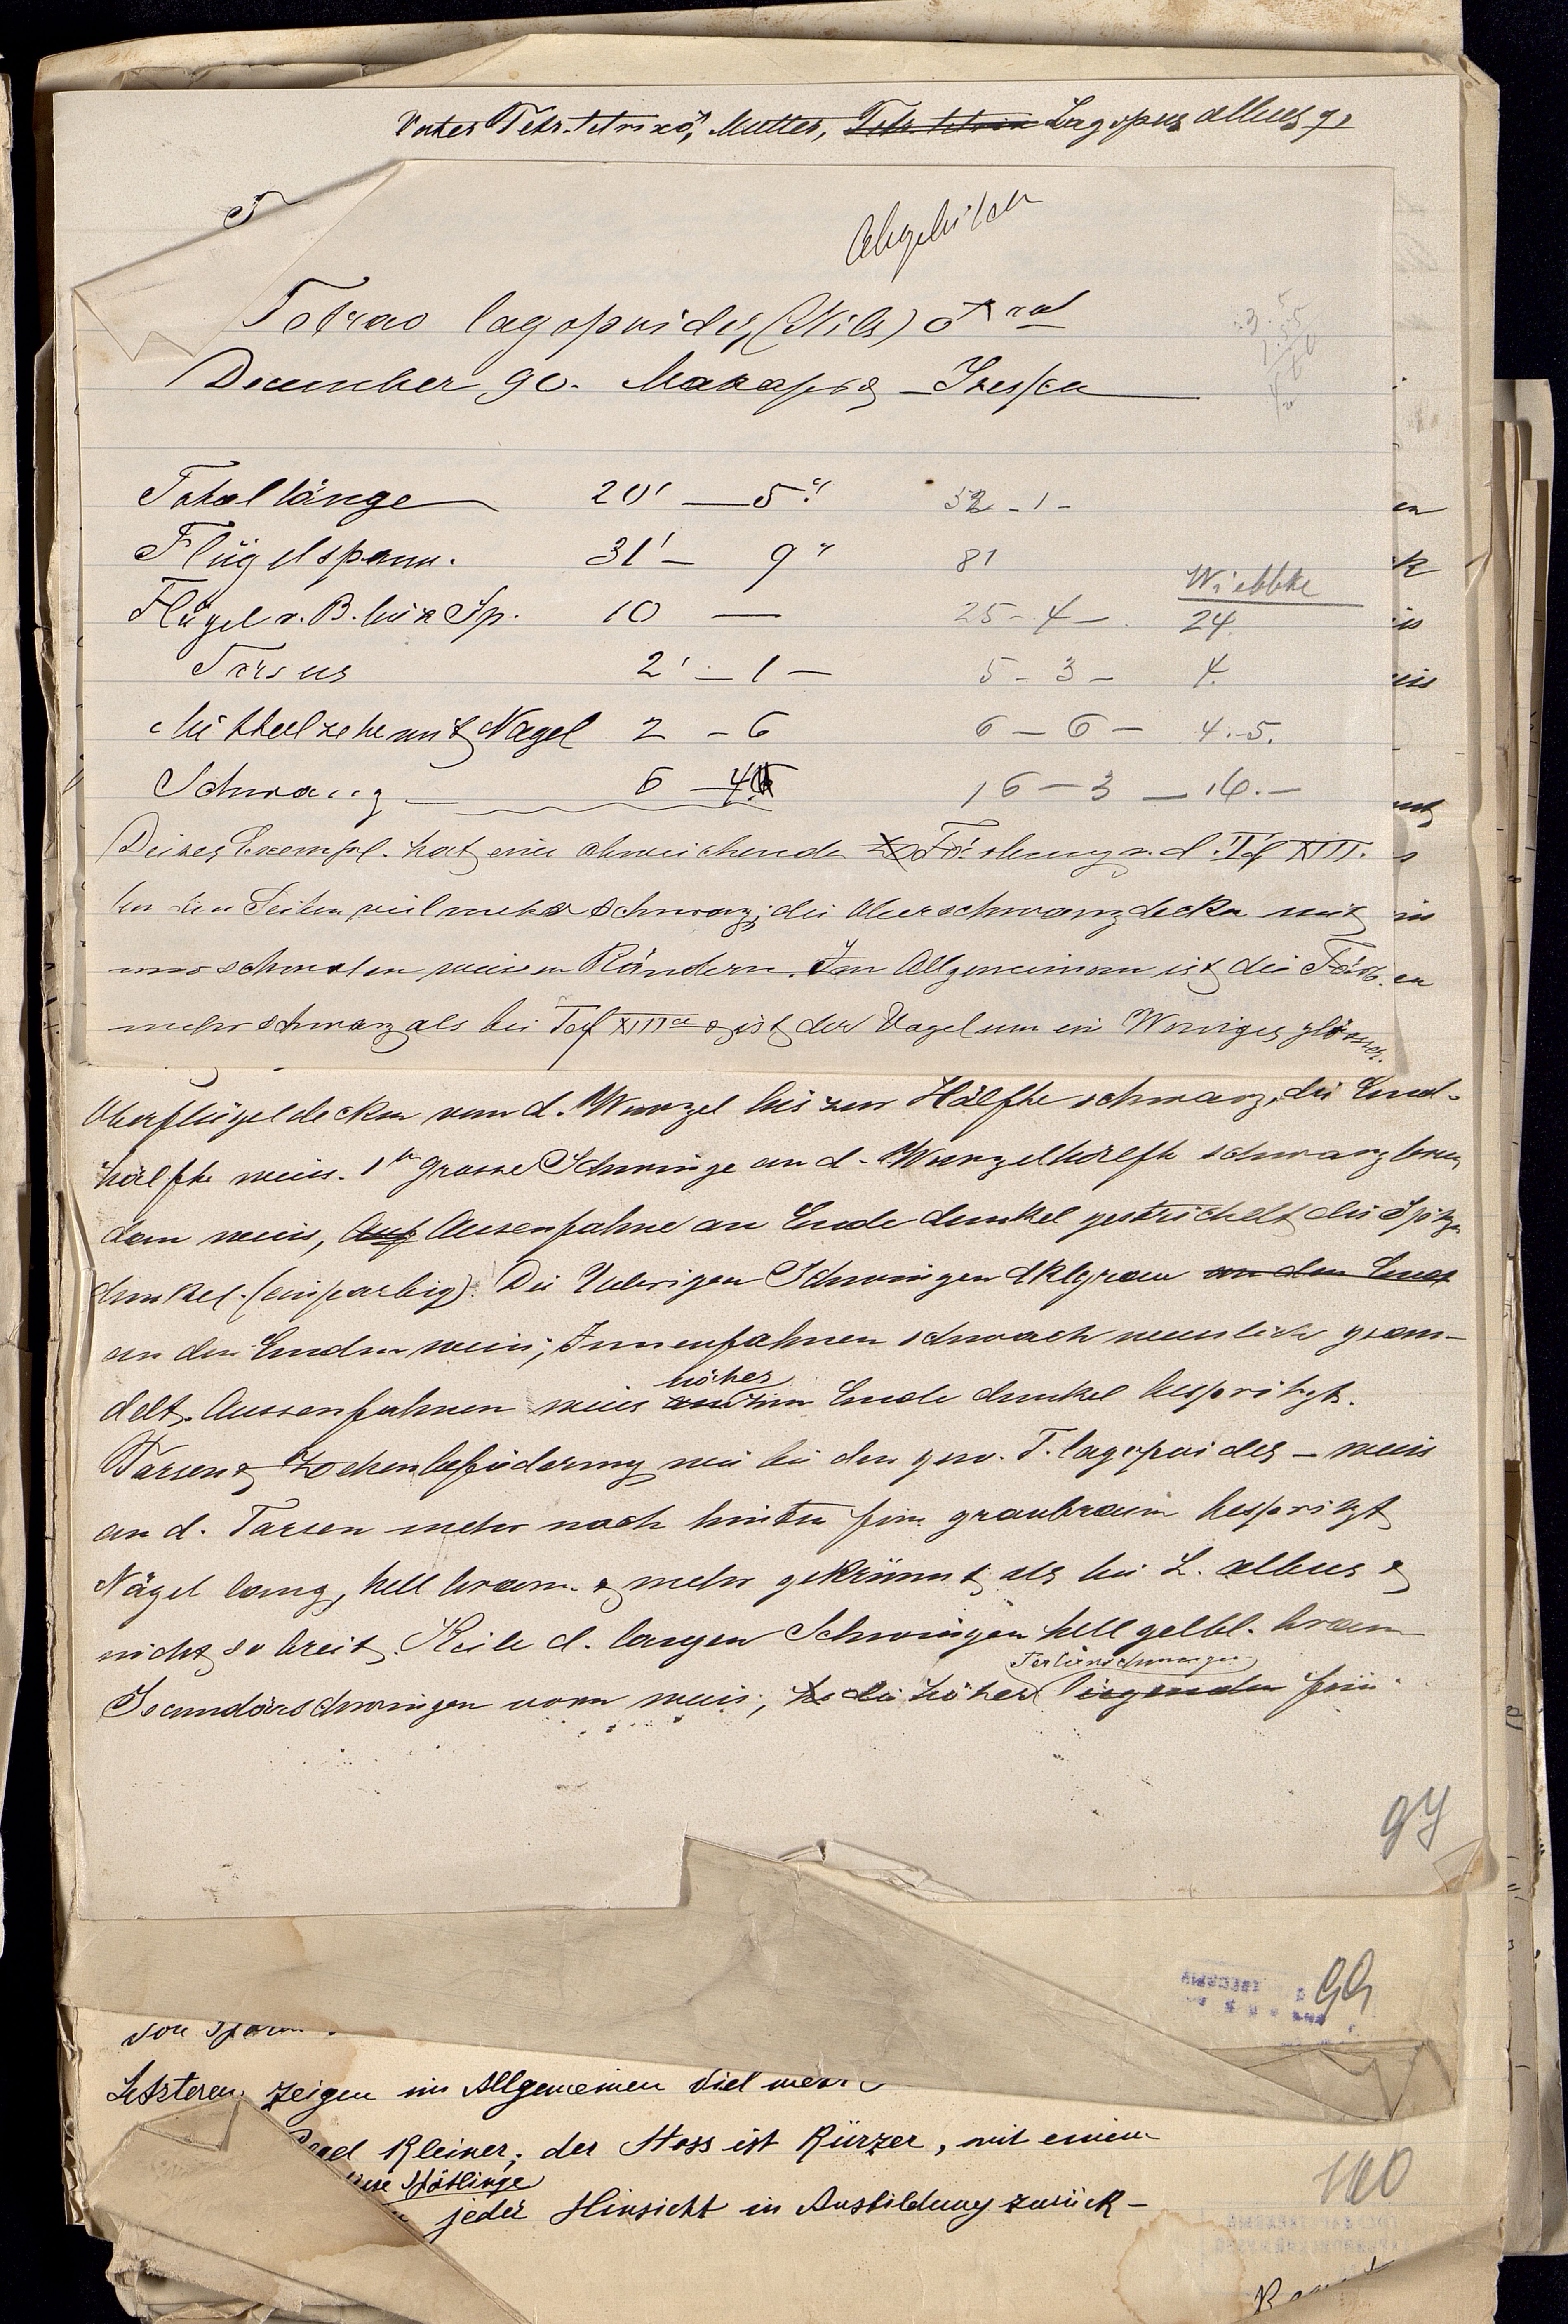 Vater Tetr. tetrix ♂, Mutter, Tetr. tetrix Lagopus albus ♀,
T
Abgebildet
Tetrao lagopoides, (Nils) ♂ ad
December 90. Макарьв
Totallänge 20' — 5" 52 - 1 -
Flügelspann. 31' — 9" 81
Wiebbke
Flügel v. B. bis z Sp. 10 — 25 - 4 - 24.
Tarsus 2' - 1 — 5 - 3 - 4.
Mittelzehe mit Nagel 2 - 6 6 - 6 - 4.-5.
Schwanz 6 — 16 - 3 — 16. -
Dieses Exempl. hat eine abweichende Färbung v. d. Tf XIII.
An den Seiten viel mehr schwarz; die Oberschwanzdecken mit
nur schmalen weisen Rändern. Im Allgemeinen ist die Färb.
mehr schwarz als bei Taf XIIIa & ist der Vogel um ein Weniges grösser.
Oberflügeldecken von d. Wurzel bis zur Hälfte schwarz, die End-
hälfte weis. 1te grosse Schwinge an d. Wurzelhälfte schwarzbraun
dann weis, Auf Aussenfahne an Ende dunkel gestrichelt, die Spitze
dunkel. (einfarbig). Die Uebrigen Schwingen dklgrau an den Enden
an den Enden weis; Innenfahnen schwach weislich gesän-
höher
delt. Aussenfahnen weis zum Ende dunkel bespritzt.
Tarsen & Zehenbefiederung wie bei den gew. T. lagopoides — weis
an d. Tarsen mehr nach hinten fein graubraun bespritzt
Nägel lang, hell braun & mehr gekrümmt als bei L. albus &
nicht so breit. Kiele d. langen Schwingen hell gelbl. braun
Tertiärschwingen
Secundärschwingen vorn weis; die höher liegenden fein
97
99
von
Letzteren zeigen im Allgemeinen viel mehr
kleiner; der Stoss ist kürzer, mit einem
Spätlinge
jeder Hinsicht in Ausbildung zurück-
100